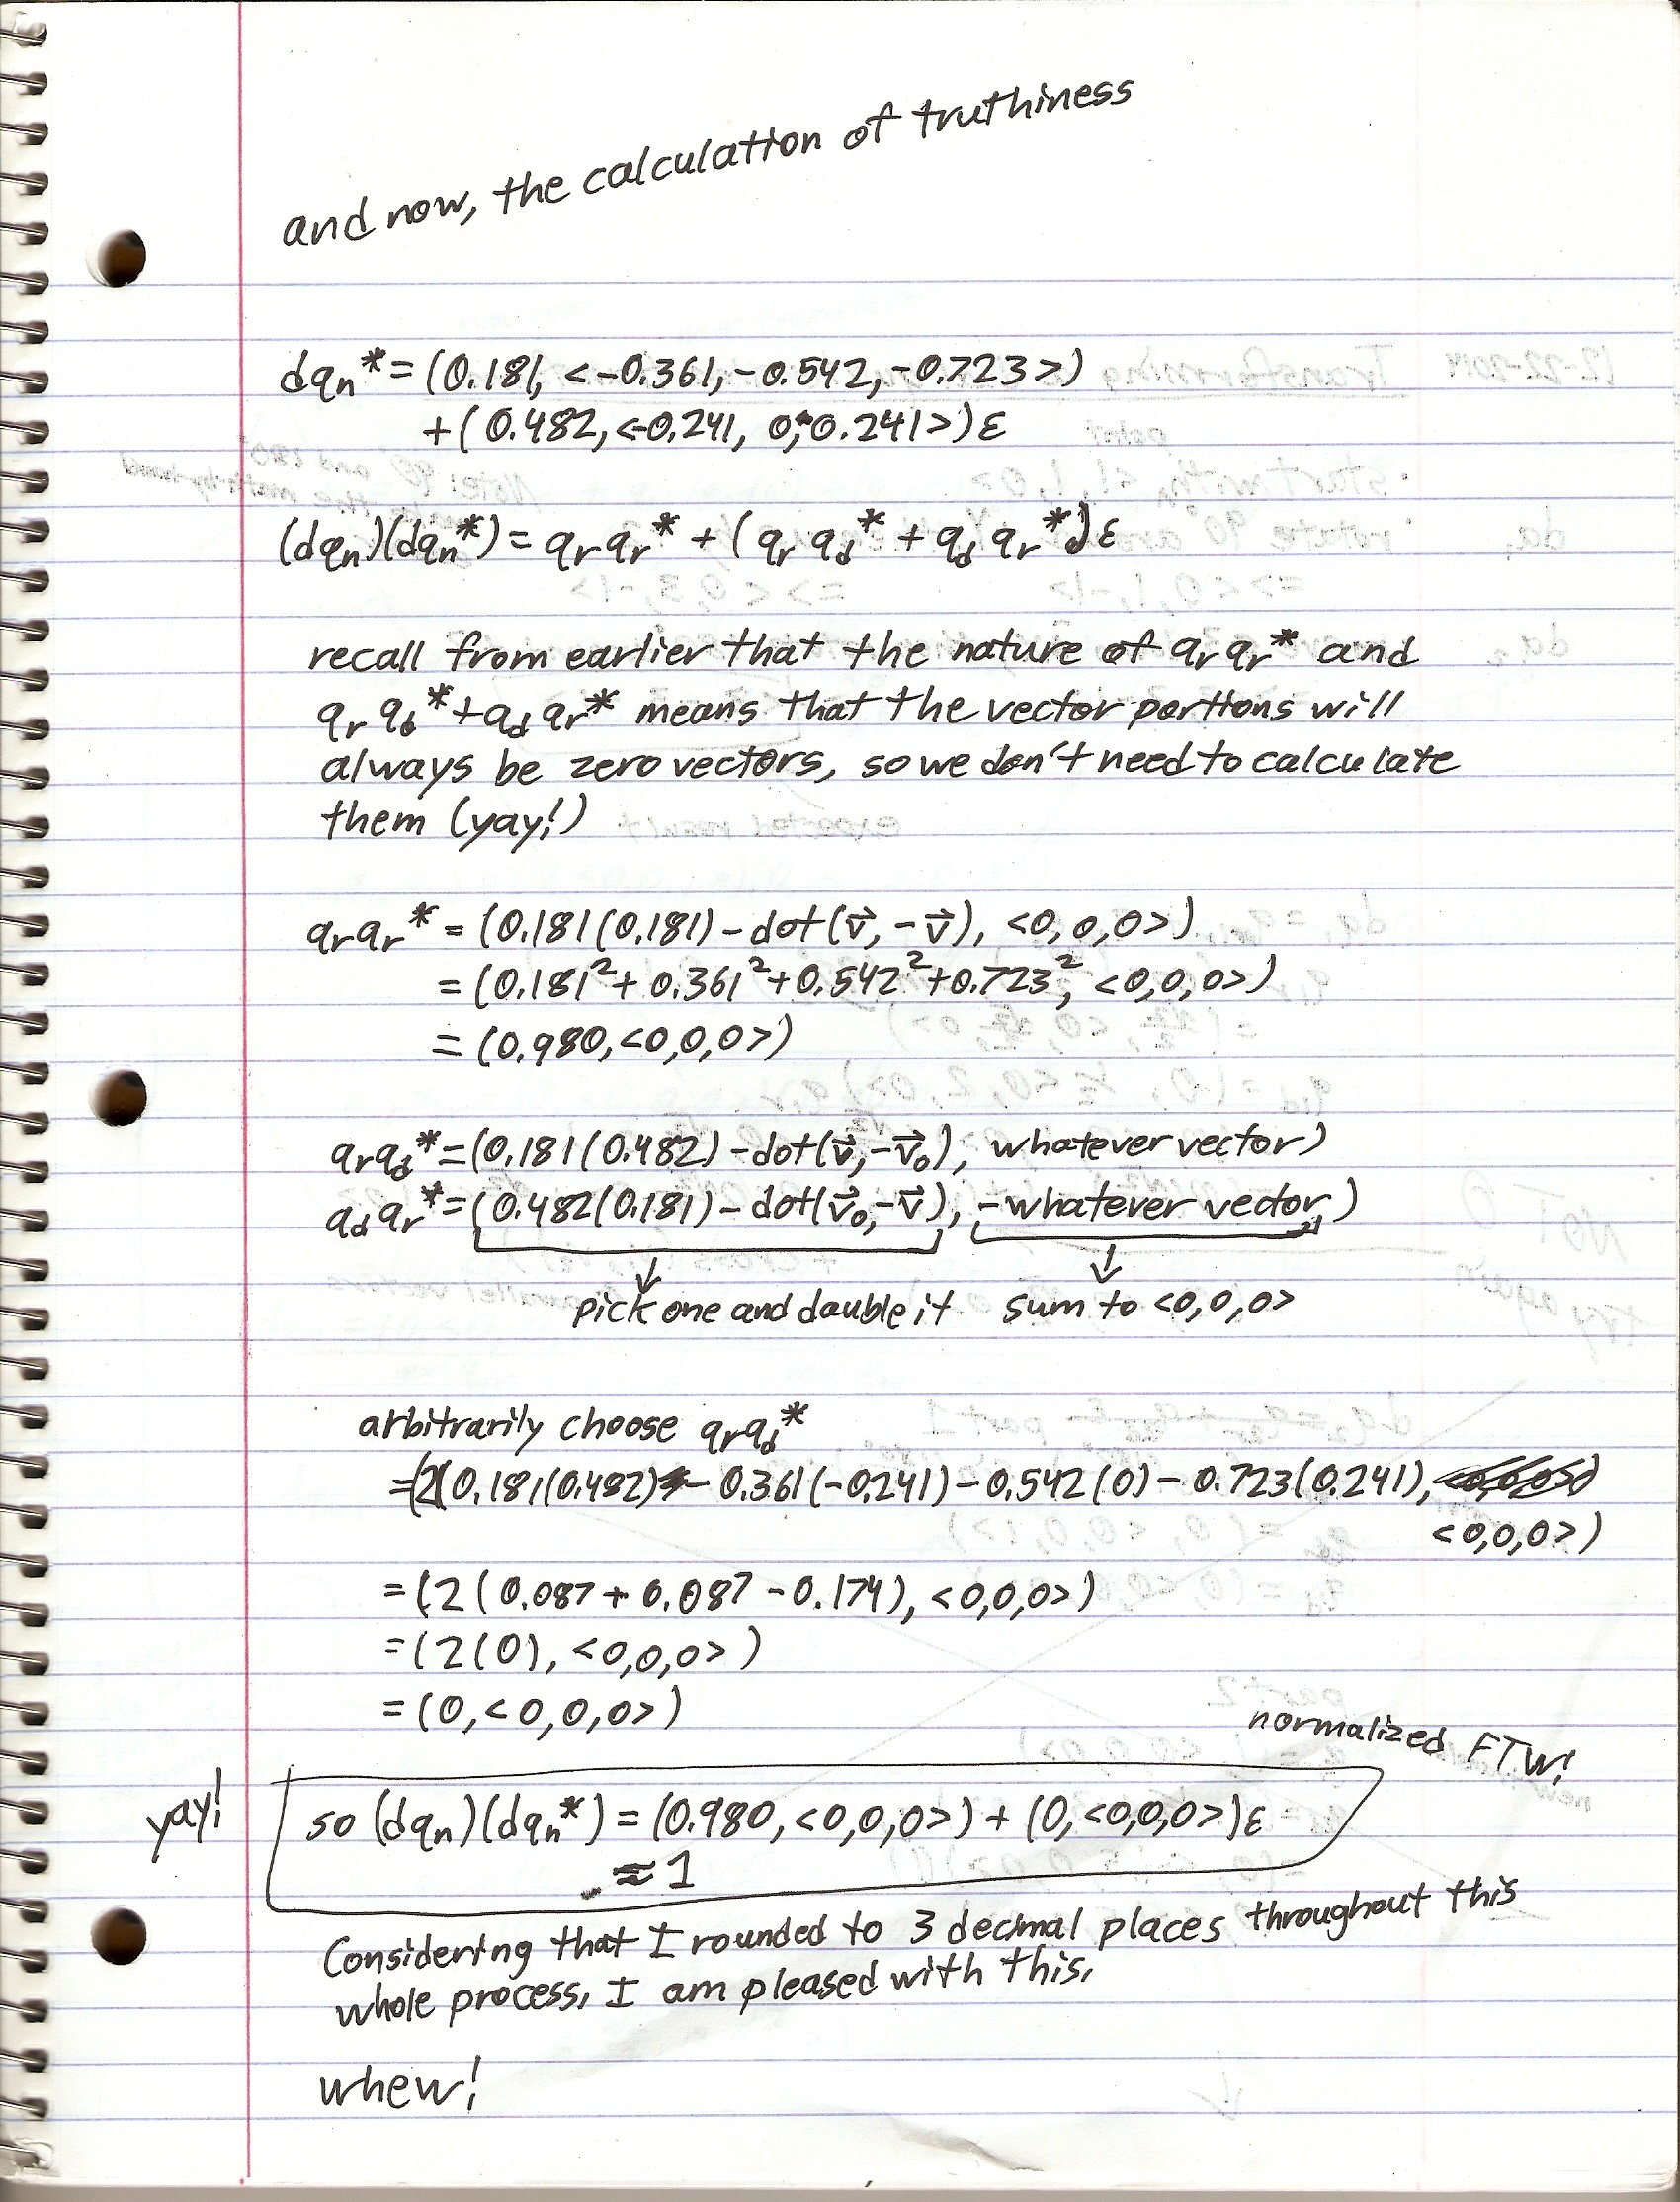 and now, the calculation of truthiness
dqn* = (0.181, <-0.361, -0.542, -0.723>)
+ (0.482, <-0.241, 0, 0.241>)ε
(dqn)(dqn*) = qr qr* + (qr qd* + qd qr*)ε
recall from earlier that the nature of qr qr* and
qr qd* + qd qr* means that the vector portions will
always be zero vectors, so we don't need to calculate
them (yay!)
qr qr* = (0.181(0.181) - dot(v⃗, -v⃗), <0,0,0>)
= (0.181² + 0.361² + 0.542² + 0.723², <0,0,0>)
= (0.980, <0,0,0>)
qr qd* = (0.181(0.482) - dot(v⃗, -v⃗₀), whatever vector)
qd qr* = (0.482(0.181) - dot(v⃗₀, -v⃗), -whatever vector)
pick one and double it sum to <0,0,0>
arbitrarily choose qr qd*
= (2(0.181(0.482) - 0.361(-0.241) - 0.542(0) - 0.723(0.241),
<0,0,0>)
= (2(0.087 + 0.087 - 0.174), <0,0,0>)
= (2(0), <0,0,0>)
= (0, <0,0,0>)
normalized FTW!
yay! so (dqn)(dqn*) = (0.980, <0,0,0>) + (0, <0,0,0>)ε
≈ 1
Considering that I rounded to 3 decimal places throughout this
whole process, I am pleased with this.
whew!